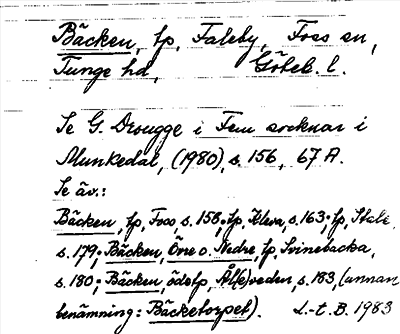 Bäcken, tp, Faleby, Foss sn,
Tunge hd, Göteb. l.
Se G. Drougge i Fem socknar i
Munkedal, (1980), s. 156, 67 A.
Se äv.:
Bäcken, tp, Foss, s. 158; tp, Kleva, s. 163; tp, Stale
s. 179; Bäcken, Övre o. Nedre, tp, Svinebacka,
s. 180; Bäcken, ödetp, Äl(e)veden, s. 183, (annan
benämning: Bäcketorpet). L.-t. B. 1983